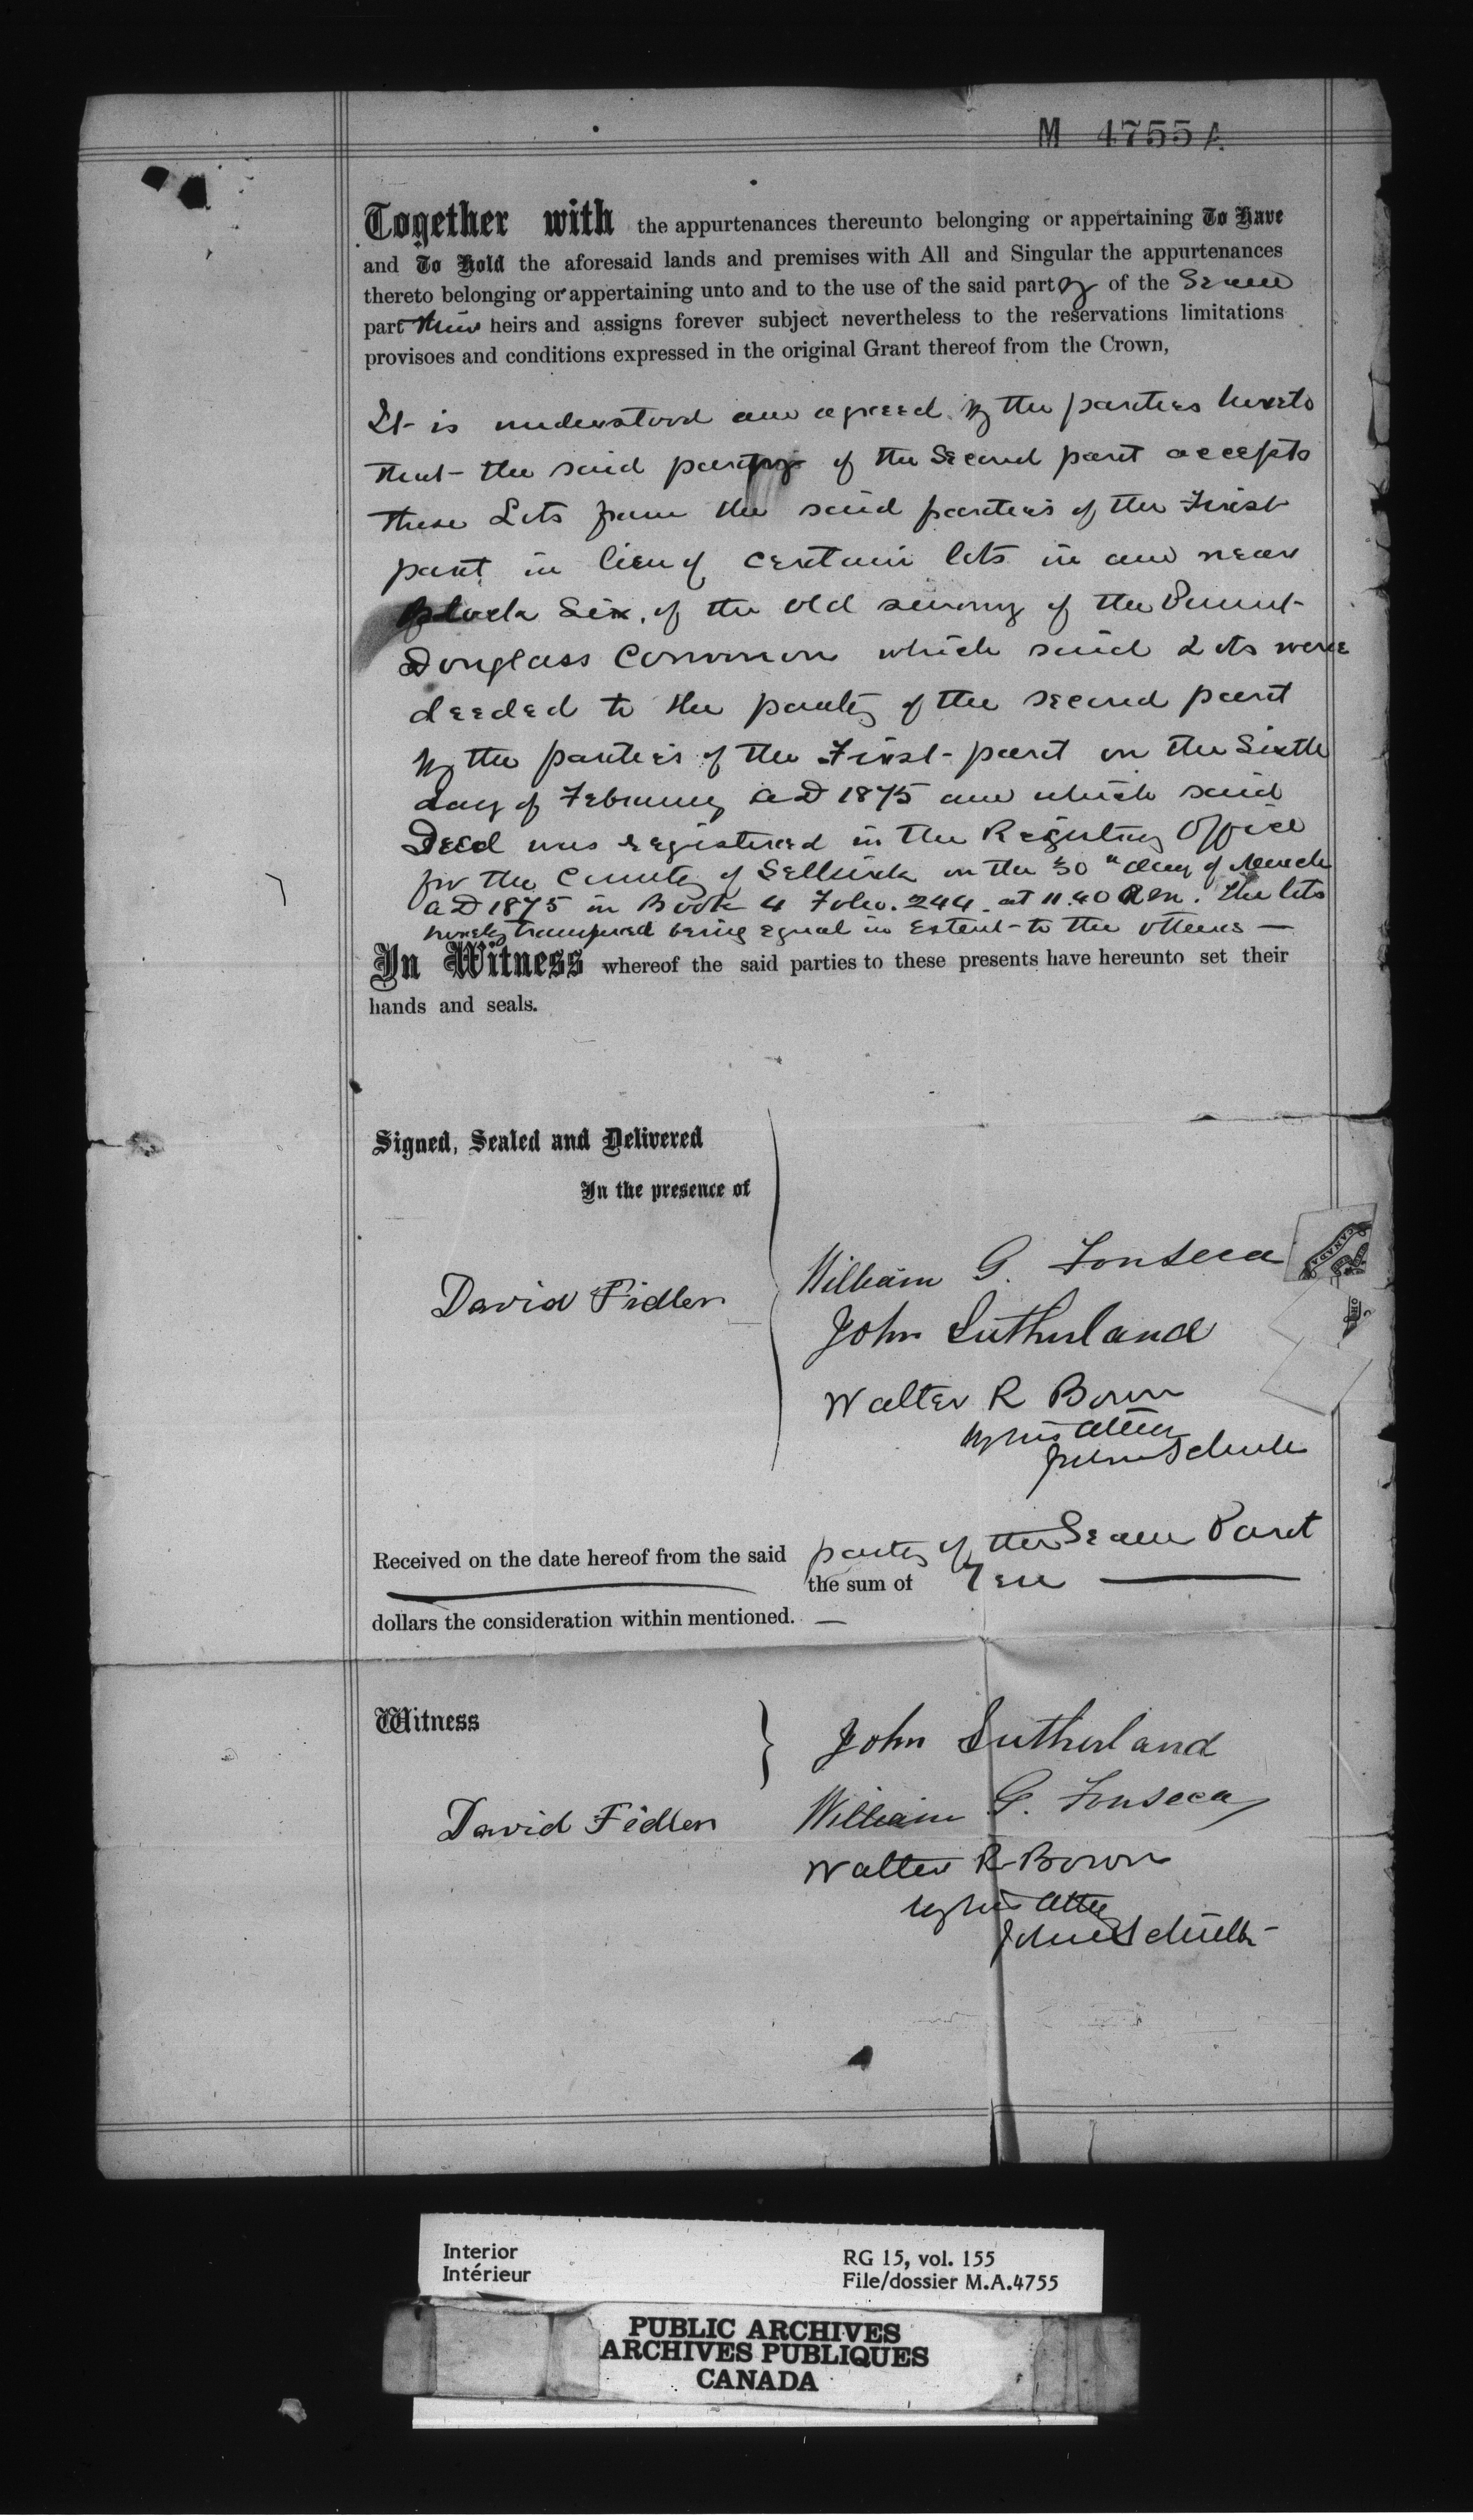 M 4755 A.
Together with the appurtenances thereunto belonging or appertaining To Have
and To Hold the aforesaid lands and premises with All and Singular the appurtenances
thereto belonging or appertaining unto and to the use of the said party of the Second
part their heirs and assigns forever subject nevertheless to the reservations limitations
provisoes and conditions expressed in the original Grant thereof from the Crown,
It is understood and agreed by the parties hereto
that the said party of the Second part accepts
these Lots from the said parties of the First
part in lieu of certain lots in and near
Block Six, of the old survey of the
Douglass Common which said Lots were
deeded to the party of the second part
by the parties of the First part on the Sixth
day of February AD 1875 and which said
Deed was registered in the Registry Office
for the County of Sellkirk on the 30th day of March
AD 1875 in Book 4 Folio. 244. at 11.40 AM. The lots
hereby transfered being equal in Extent to the others —
In Witness whereof the said parties to these presents have hereunto set their
hands and seals.
Signed, Sealed and Delivered
In the presence of
David Fidler
William G. Fonseca
John Sutherland
Walter R Bown
by his Atty
John Schultz
CANADA
Received on the date hereof from the said party of the Second Part
the sum of Ten
dollars the consideration within mentioned. —
Witness
David Fidler
John Sutherland
William G. Fonseca
Walter R Bown
by his Atty
John Schultz
Interior
Intérieur
RG 15, vol. 155
File/dossier M.A.4755
PUBLIC ARCHIVES
ARCHIVES PUBLIQUES
CANADA